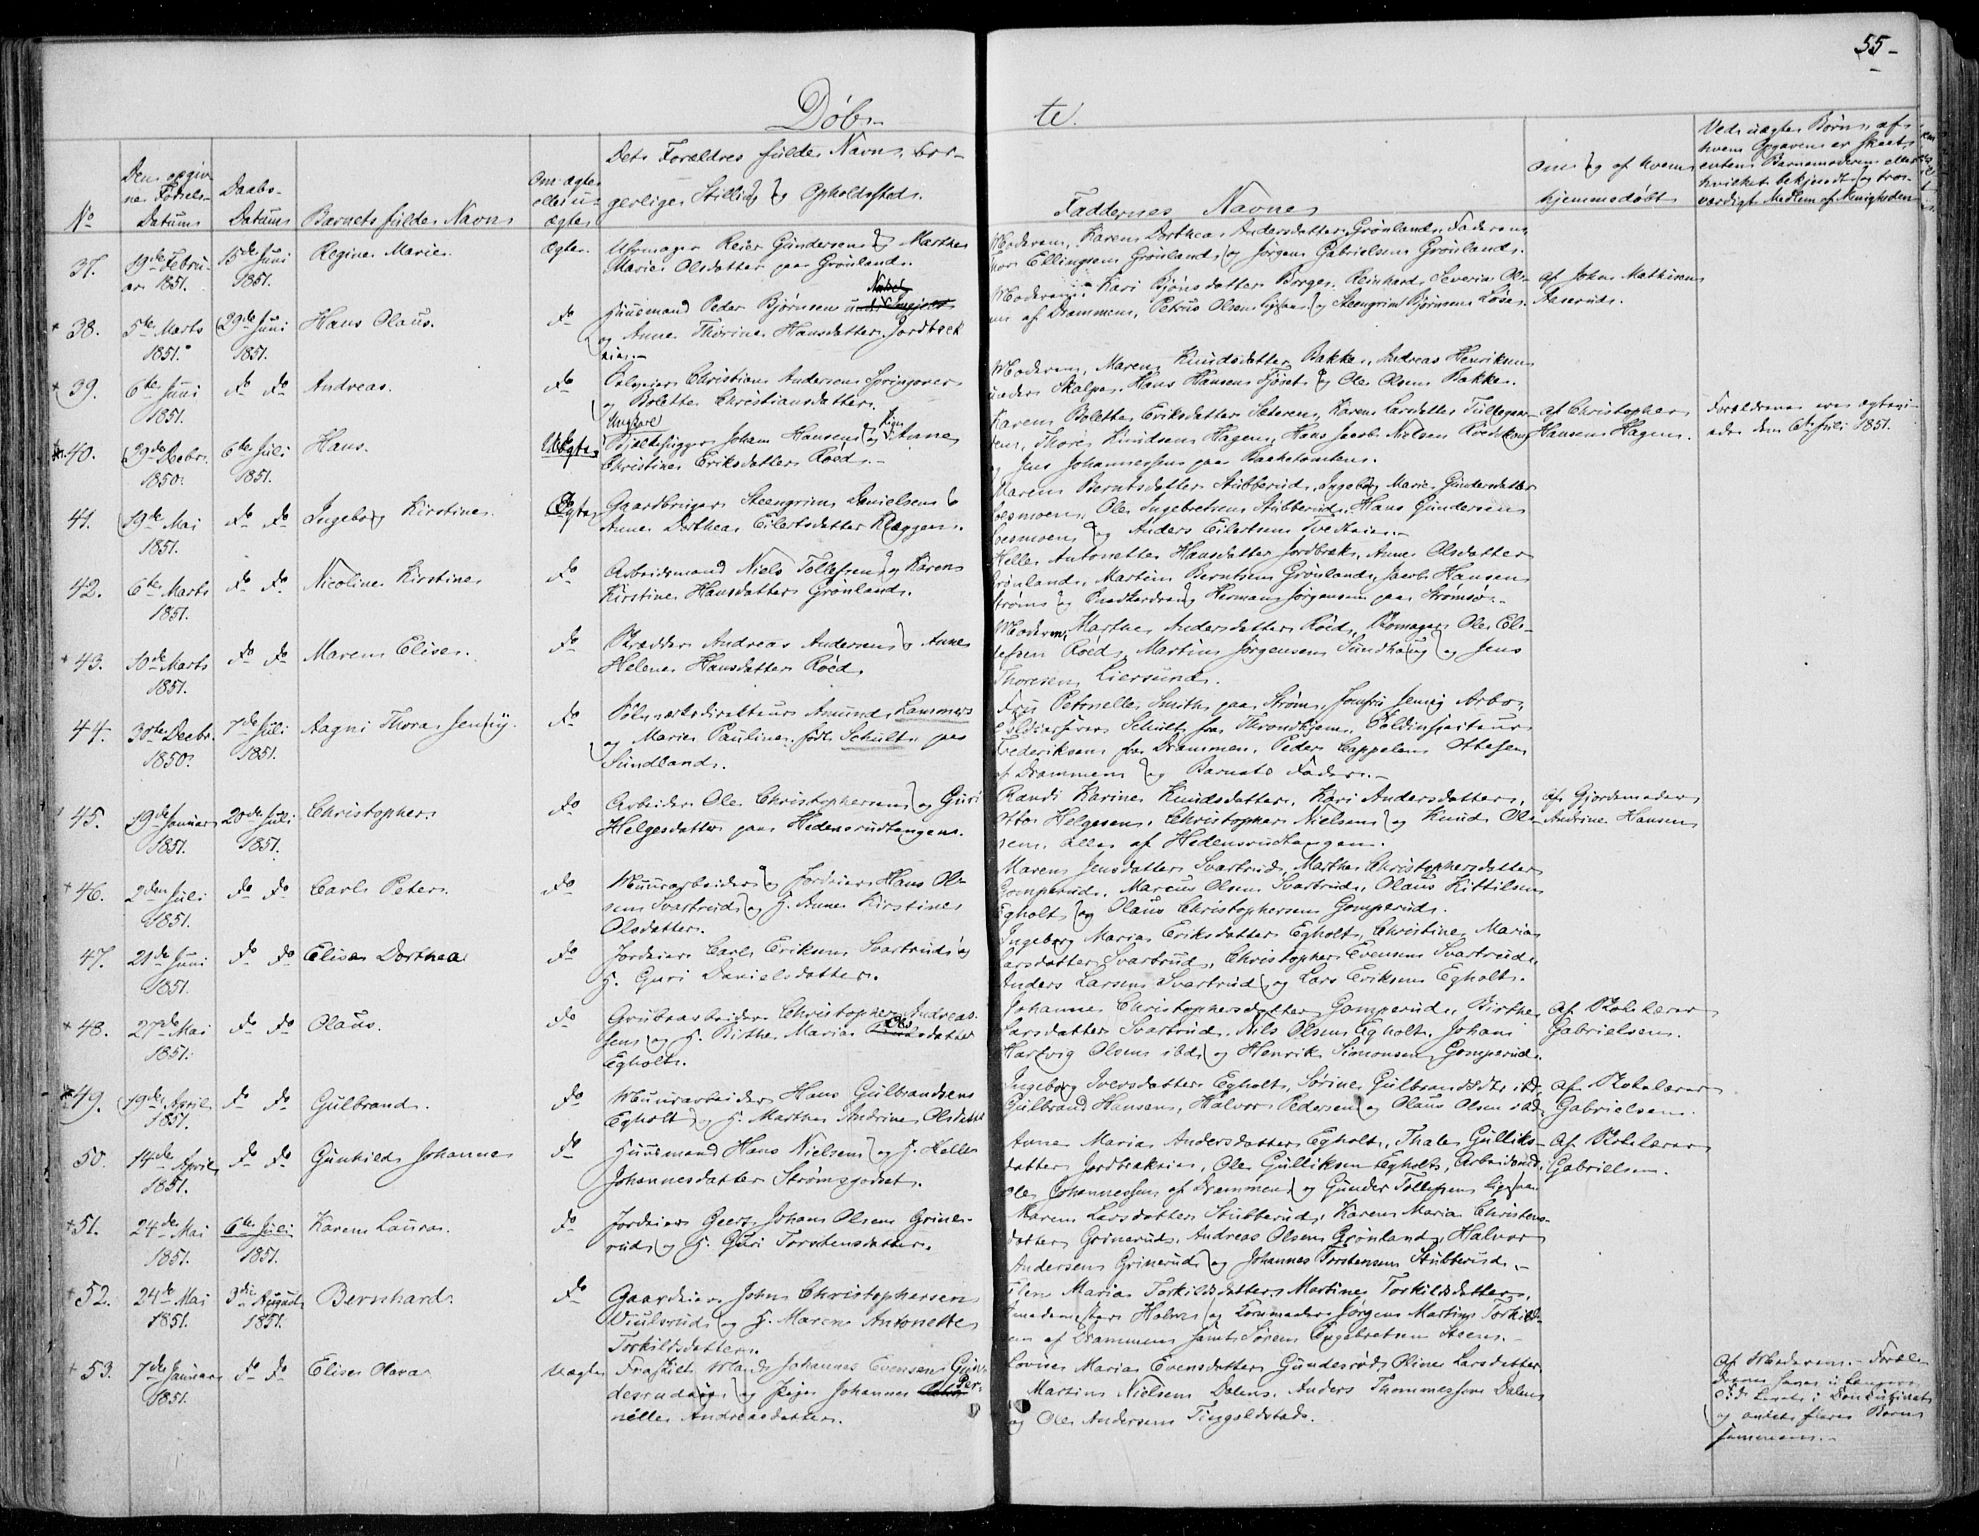 55-
Døb-
te.
No
Den opgiv
ne Fødsels-
Datum
Daabs-
Datum
Barnets fulde Navn
Om ægte
eller u-
ægte
Dets Forældres fulde Navn, bor-
gerlige Stilling og Opholdssted.
Faddernes Navne
Om og af hvem
hjemmedøbt
Ved uægte Børn, af
hvem Opgaven er skeet,
enten Barnemoderen eller
hvilket bekjendt og tro-
værdigt Medlem af Menigheden
37.
19de Febru-
ar 1851.
15de Juni
1851.
Regine Marie.
Ægte.
Uhrmager Reier Gundersen og Marthe
Marie Olsdatter paa Grønland.
Moderen, Karen Dorthea Andersdatter Grønland, Faderen
Thor Ellingsen Grønland og Jørgen Gabrielsen Grønland.
38.
5te Marts
1851.
29de Juni
1851.
Hans Olaus.
do
Huusmand Peder Bjørnsen under
og Anne Thorine Hansdatter Jordbræk
eie.-
Moderen, Kari Bjønsdatter Borge, Reinhard Severin Ol-
sen af Drammen, Petrus Olsen og Steengrim Bjørnsen Løse.
af John Mathisen
Stensrud.
39.
6te Juni
1851.
do do
Andreas.
do
Pladseier Christian Andersen Springover
og Bolette Christiansdatter.
Moderen, Maren Knudsdatter Bakke, Andreas Henriksen
under Skalpe, Hans Hansen Fjøset og Ole Olsen Bakke.
40.
29de Decbr.
1850.
6te Juli
1851.
Hans.
Uægte
Ungkarl
Johan Hansen og Pige Anne
Christine Eriksdatter Roed.-
Karen Bolette Eriksdatter Sæteren, Karen Larsdatter
Thore Knudsen Hagen, Hans Jacob Nielsen Roedskoug
og Jens Johannessen paa Bakketomten.
af Christopher
Hansen Hagen.
Forældrene ere ægtevi-
ede den 6te Juli 1851.
41.
19de Mai
1851.
do do
Ingeborg Kirstine.
Ægte
Gaardbruger Steengrim Danielsen &
Anne Dorthea Eilertsdatter Kleggen.
Maren Berntsdatter Stubberud, Ingeborg Marie Gundersdatter
Loesmoen, Ole Ingebretsen Stubberud, Hans Gundersen
Loesmoen og Anders Eilertsen Tvedteie.-
42.
6te Marts
1851.
do do
Nicoline Kirstine
do
Arbeidsmand Niels Tollefsen og Karen
Kirstine Hansdatter Grønland.
Helle Antonette Hansdatter Jordbræk, Anne Olsdatter
Grønland, Martin Berntsen Grønland, Jacob Hansen
Strøm og Herman Jørgensen paa Strømsø.-
43.
10de Marts
1851.
do do
Maren Elise.
do
Skrædder Andreas Andersen og Anne
Helene Hansdatter Roed
Moderen, Marthe Andersdatter Roed, Skomager Ole El-
lefsen Roed, Martin Jørgensen Sundhaug og Jens
Thoresen Liersund.
44.
30te Decbr.
1850.
7de Juli
1851.
Aagni Thora Jenny.
do
Sølvværksdirekteur Amund Lammers
og Marie Pauline født Schult paa
Sundland.
Fru Petronelle Smith paa Strøm, Jomfru Jenny Arbo,
Schult fra Throndhjem, Toldinspecteur
Frederiksen fra Drammen, Peder Cappelen Ottesen
af Drammen og Barnets Fader.-
45.
19de Januar
1851.
20de Juli
1851.
Christopher
do
Arbeider Ole Christophersen og Guri
Helgesdatter paa Hedensrudtangen.
Randi Karine Knudsdatter, Kari Andersdatter,
Otto Helgesen, Christopher Nielsen og Knud Ol-
sen, alle af Hedensrudtangen.
af Gjordemoder
Andrine Hansen
46.
2den Juli
1851.
do do
Carl Peter.
do
Muurarbeider og Jordeier Hans Ol-
sen Svartrud og H. Anne Kirstine
Olsdatter.
Maren Jensdatter Svartrud, Marthe Christophersdatter
Gomperud, Marcus Olsen Svartrud, Olaus Kittilsen
Egholt og Olaus Christophersen Gomperud.
47.
21de Juni
1851.
do do
Elisa Dorthea
do
Jordeier Carl Eriksen Svartrud &
H. Guri Danielsdatter.
Ingeborg Maria Eriksdatter Egholt, Christine Maria
Larsdatter Svartrud, Christopher Evensen Svartrud,
Anders Larsen Svartrud og Lars Eriksen Egholt.
48.
27de Mai
1851.
do do
Olaus.
do
Grubearbeider Christopher Andreas-
sen og H. Birthe Maria Olsdatter
Egholt.
Johanne Christophersdatter Gomperud, Birthe
Larsdatter Svartrud, Nils Olsen Egholt, Johan
Hartvig Olsen ibd. og Henrik Simonsen Gomperud.
Af Skolelærer
Gabrielsen.
49.
19de April
1851.
do do
Gulbrand.
do
Muurarbeider Hans Gulbrandsen
Egholt og H. Marthe Andrine Olsdatter
Ingeborg Iversdatter Egholt, Sørine Gulbrandsdtr. ibd,
Gulbrand Hansen, Halvor Pedersen og Olaus Olsen ibd.
Af Skolelærer
Gabrielsen.
50.
14de April
1851.
do do
Gunhild Johanne
do
Huusmand Hans Nielsen og H. Helle
Johannesdatter Strømsgodset.
Anne Maria Andersdatter Egholt, Thale Gulliks-
datter Jordbrækeie, Ole Gulliksen Egholt, Arbeidsmd.
Ole Johannessen af Drammen og Gunder Tollefsen
Af Skolelærer
Gabrielsen.
51.
24de Mai
1851.
6te Juli
1851.
Karen Laura.
do
Jordeier Geert Johan Olsen Grine-
rud og H. Guri Torstensdatter.
Maren Larsdatter Stubberud, Karen Maria Christens-
datter Grinerud, Andreas Olsen Grønland, Halvor
Andersen Grinerud og Johannes Torstensen Stubberud.-
52.
24de Mai
1851.
3die August
1851.
Bernhard.
do
Gaardeier John Christophersen
Viulsrud og H. Maren Antonette
Torkildsdatter.
Elen Maria Torkildsdatter, Martine Torkildsdatter,
Halvor og Kornmaaler Jørgen Martin Torkild-
sen af Drammen samt Søren Engebretsen Steen.-
53.
7de Januar
1851.
do do
Elise Olava
Uægte
Fraskilt Mand Johannes Evensen Gun-
desrudeie og Pige Johanne Per-
nille Andreasdatter.
Lovise Maria Evensdatter Gundesrød, Oline Larsdatter
Martin Nielsen Dalen, Anders Thommessen Dalen
og Ole Andersen Tingoldstad.
Af Moderen.- Foræl-
drene have i længere
Tid levet i Concubinat
og avlet flere Børn
sammen.-